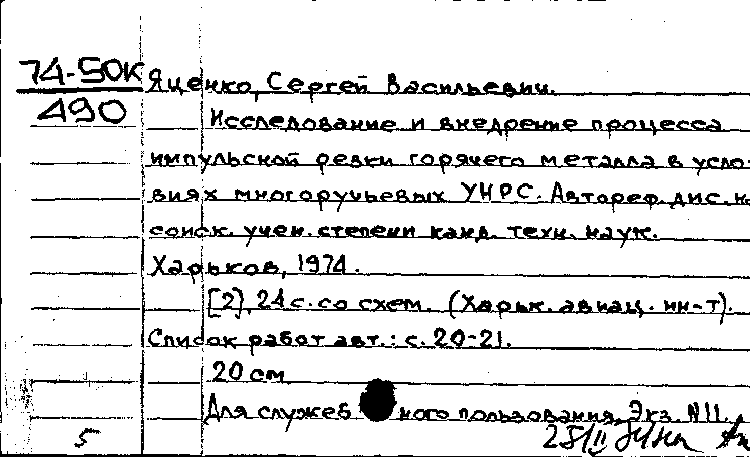 74-50К Яценко, Сергей Васильевич.
490
Исследование и внедрение процесса
импульсной резки горячего металла в усло-
виях многоручьевых УНРС. Автореф. дис. на
соиск. учен. степени канд. техн. наук.
Харьков, 1974.
[2], 24 с. со схем. (Харьк. авиац. ин-т).
Список работ авт.: с. 20-21.
20 см
Для служебного пользования, Экз. N11.
5 25/II